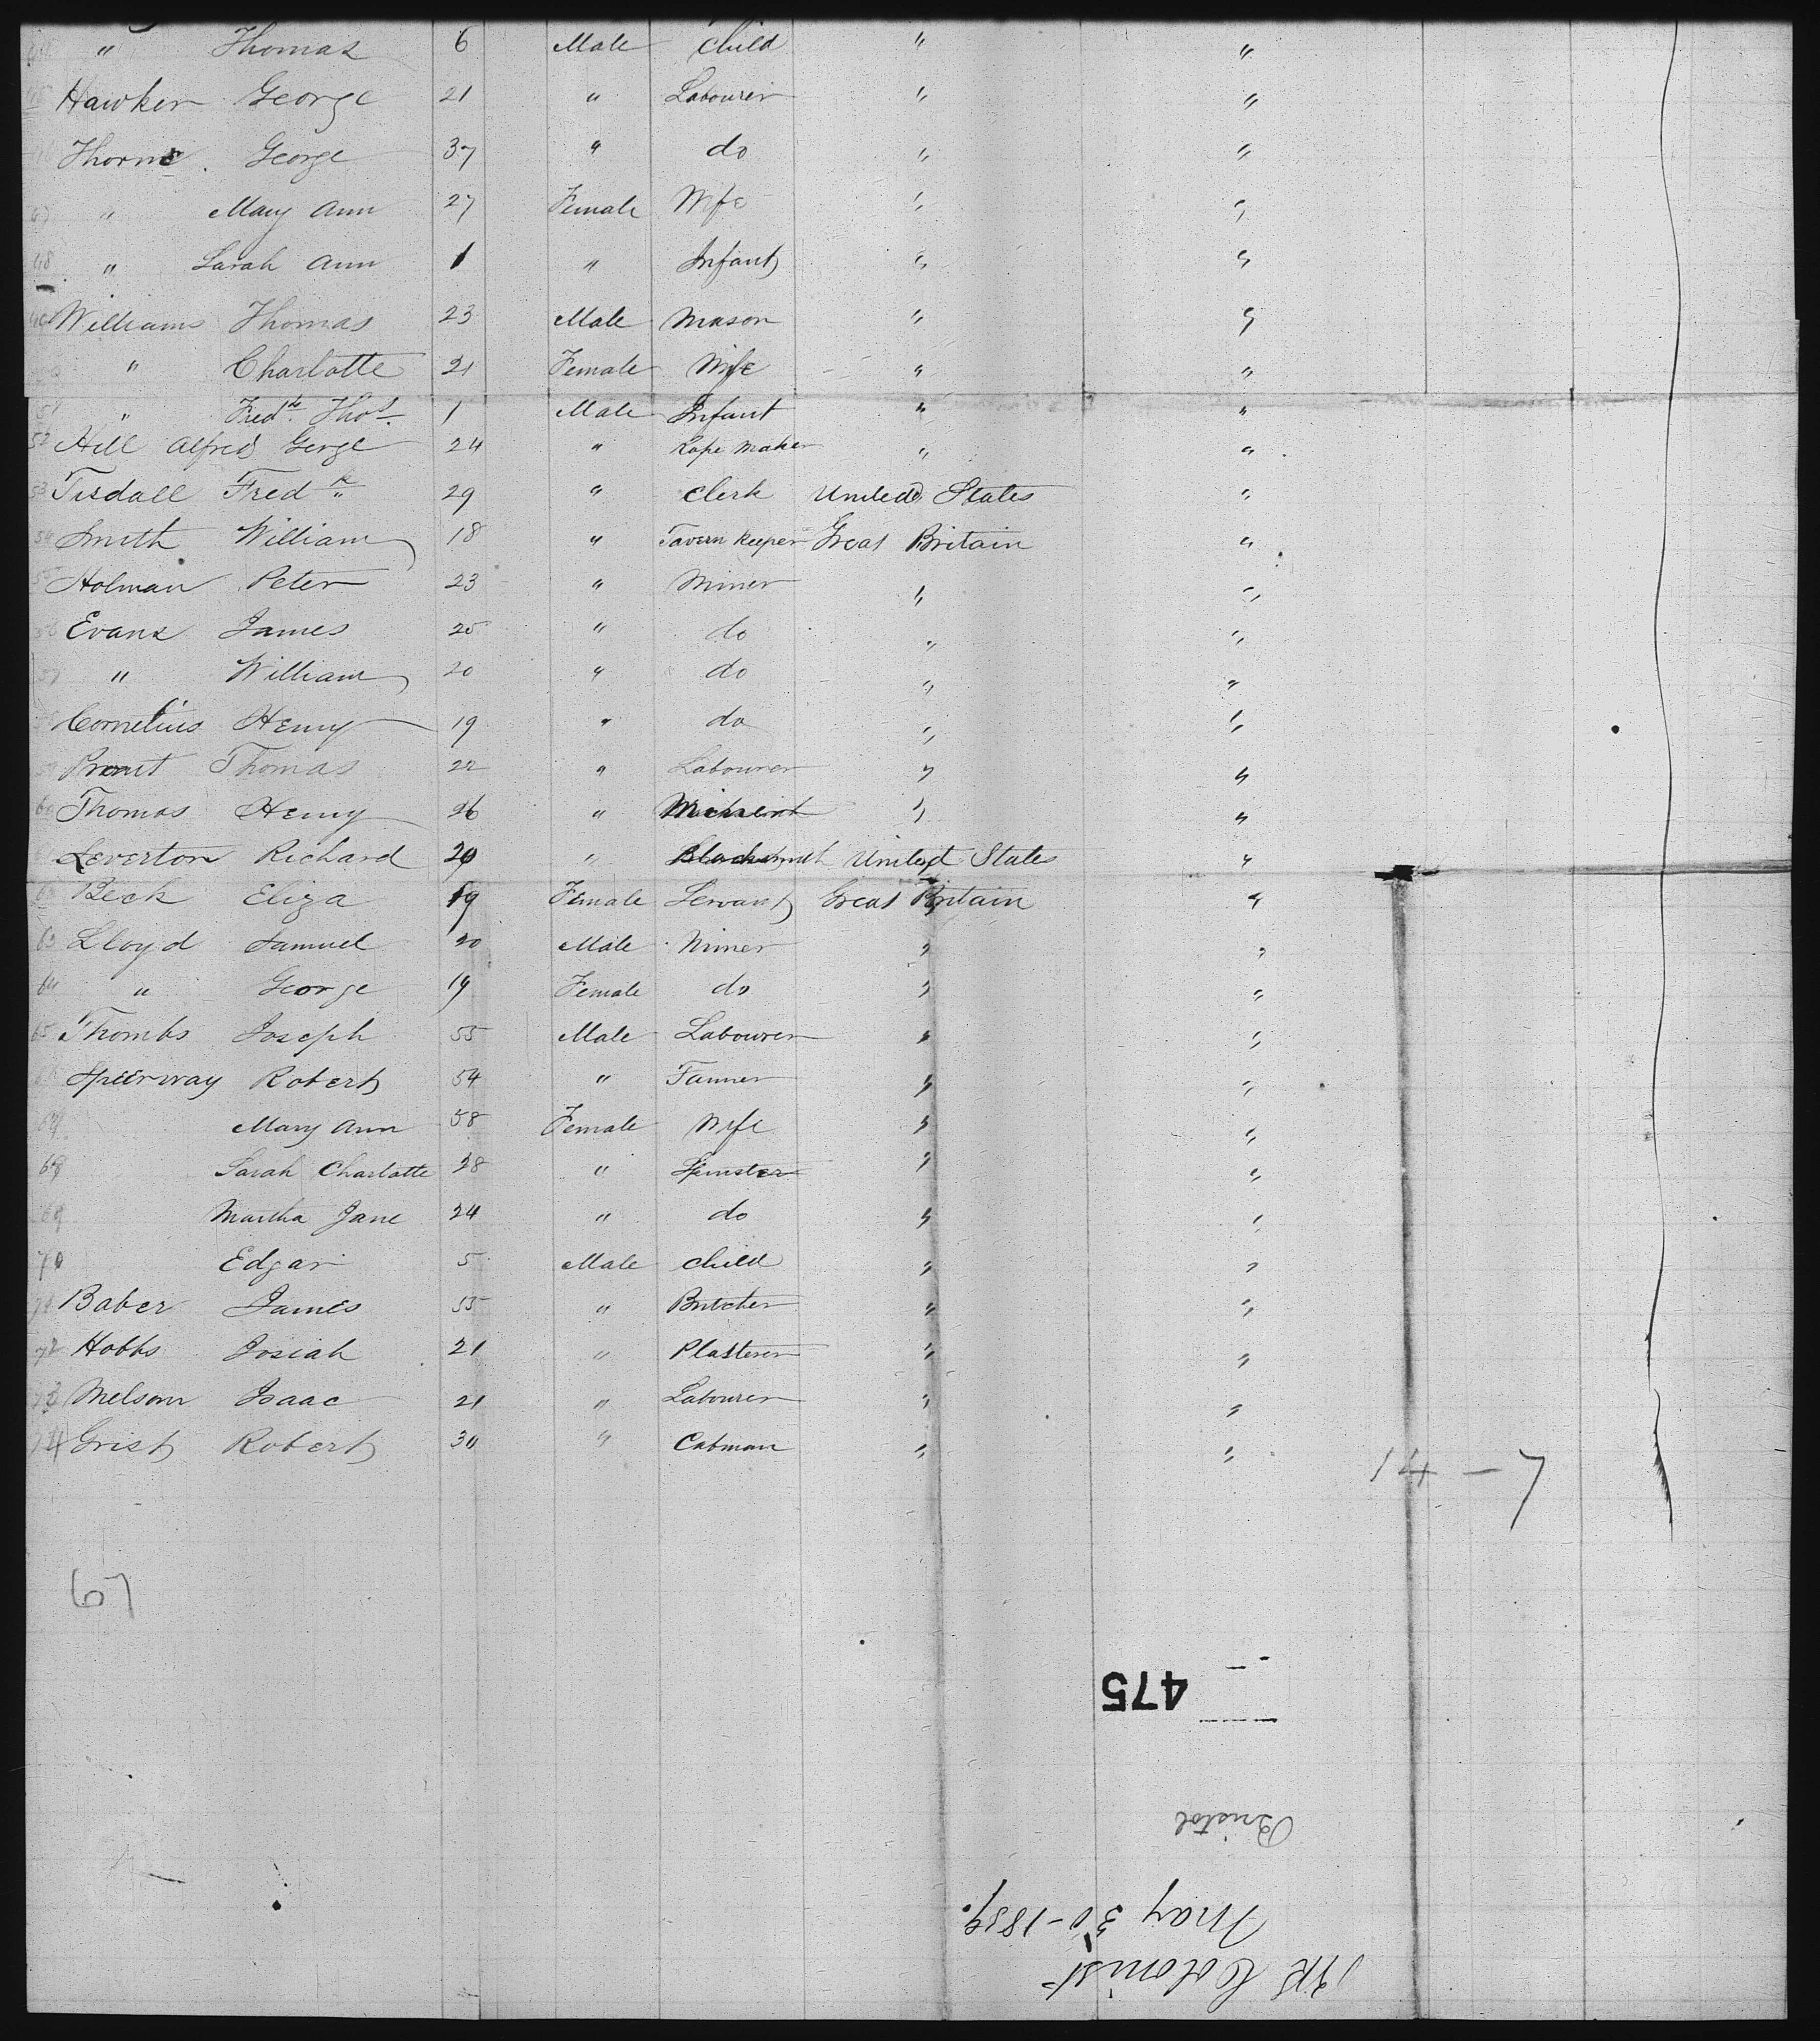 " Thomas 6 Male Child " "
Hawker George 21 " Labourer " "
Thorne George 37 " do " "
47 " Mary Ann 27 Female Wife " "
48 " Sarah Ann 1 " Infant " "
49 Williams Thomas 23 Male Mason " "
" Charlotte 21 Female Wife " "
51 " Fredk Thos. 1 Male Infant " "
52 Hill Alfred Gerge 24 " Rope Maker " "
53 Tisdall Fredk 29 " Clerk United States "
54 Smith William 18 " Tavern Keeper Great Britain "
Holman Peter 23 " Miner " "
Evans James 25 " do " "
57 " William 20 " do " "
Cornelius Henry 19 " do " "
Prout Thomas 22 " Labourer " "
60 Thomas Henry 26 " " "
Leverton Richard 29 " Blacksmith United States "
Beck Eliza 19 Female Servant Great Britain "
63 Lloyd Samuel 20 Male Miner " "
64 " George 19 Female do " "
65 Thombs Joseph 55 Male Labourer " "
Speerway Robert 54 " Tanner " "
Mary Ann 58 Female Wife " "
68 Sarah Charlotte 28 " Spinster " "
69 Martha Jane 24 " do " "
70 Edgar 5 Male Child " "
Baber James 55 " Butcher " "
72 Hobbs Josiah 21 " Plasterer " "
73 Melsom Isaac 21 " Labourer " "
74 Grist Robert 30 " Cabman " "
14 - 7
67
475
Bristol
May 30 - 1859.
Colonist